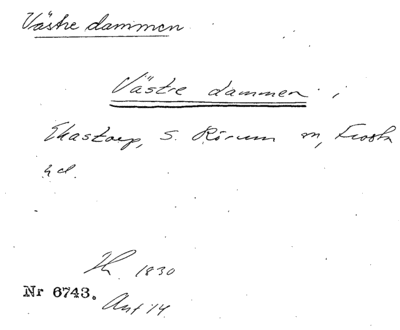 Västre dammen
Västre dammen i
Ekastorp, S. Rörum sn, Frosta
hd.
Th. 1830
Nr 6743.
Ant 14